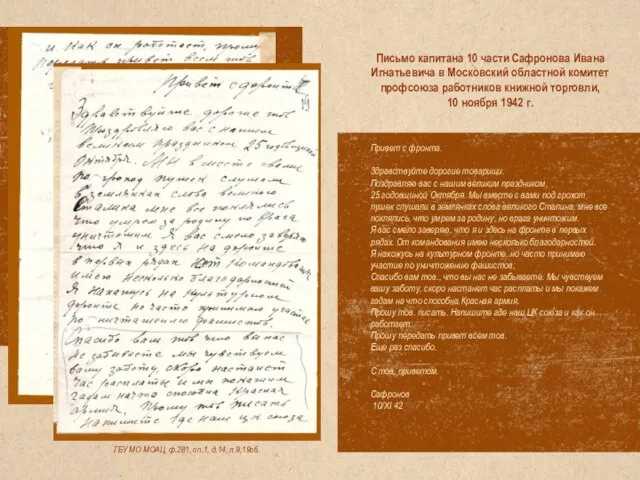 и. как он работает, прошу
передать привет всем тов
Привет с фронта
19
Здравствуйте дорогие тов
Поздравляю вас с нашим
великим праздником 25 годовщиной
Октября. Мы вместе с вами
под грохот пушек слушали
в землянках слова великого
Сталина мне все поклялись
что умрем за родину но врага
уничтожим Я вас смело заверяю
что я и здесь на фронте
в первых рядах от командования
имею несколько благодарностей
Я нахожусь на культурном
фронте но часто принимаю участие
по уничтожению фашистов.
Спасибо вам тов что вы нас
не забываете мы чувствуем
вашу заботу, скоро настанет
час расплаты и мы покажем
гадам на что способна Красная
армия. Прошу тов писать
Напишите где наш цк союза
ГБУ МО МОАЦ, ф.281, оп.1, д.14, л.9,19об.
Письмо капитана 10 части Сафронова Ивана
Игнатьевича в Московский областной комитет
профсоюза работников книжной торговли,
10 ноября 1942 г.
Привет с фронта.
Здравствуйте дорогие товарищи.
Поздравляю вас с нашим великим праздником
25 годовщиной Октября. Мы вместе с вами под грохот
пушек слушали в землянках слова великого Сталина, мне все
поклялись, что умрем за родину, но врага уничтожим.
Я вас смело заверяю, что я и здесь на фронте в первых
рядах. От командования имею несколько благодарностей.
Я нахожусь на культурном фронте, но часто принимаю
участие по уничтожению фашистов.
Спасибо вам тов., что вы нас не забываете. Мы чувствуем
вашу заботу, скоро настанет час расплаты и мы покажем
гадам на что способна Красная армия.
Прошу тов. писать. Напишите где наш ЦК союза и как он
работает.
Прошу передать привет всем тов.
Еще раз спасибо.
С тов. приветом.
Сафронов
10/XI 42